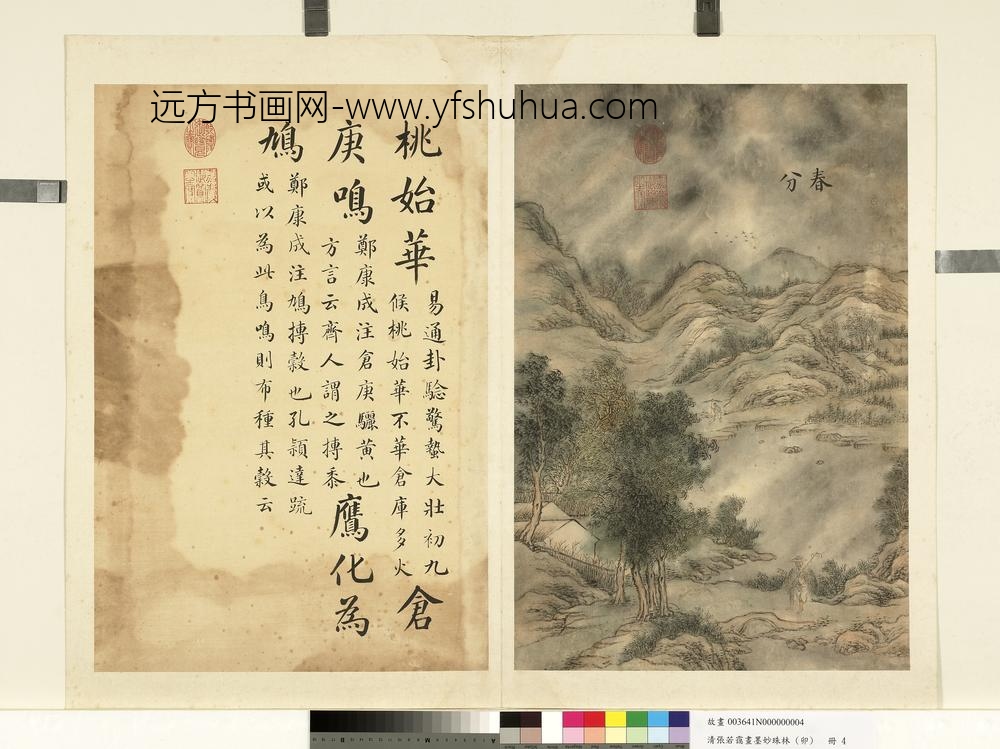 远方书画网-www.yfshuhua.com
春分
桃始華
易通卦驗驚蟄大壯初九
候桃始華不華倉庫多火
倉
庚鳴
鄭康成注倉庚驪黃也
方言云齊人謂之搏黍
鷹化為
鳩
鄭康成注鳩搏穀也孔穎達疏
或以為此鳥鳴則布種其穀云
故畫 003641N000000004
清張若靄畫墨妙珠林（卯） 冊 4